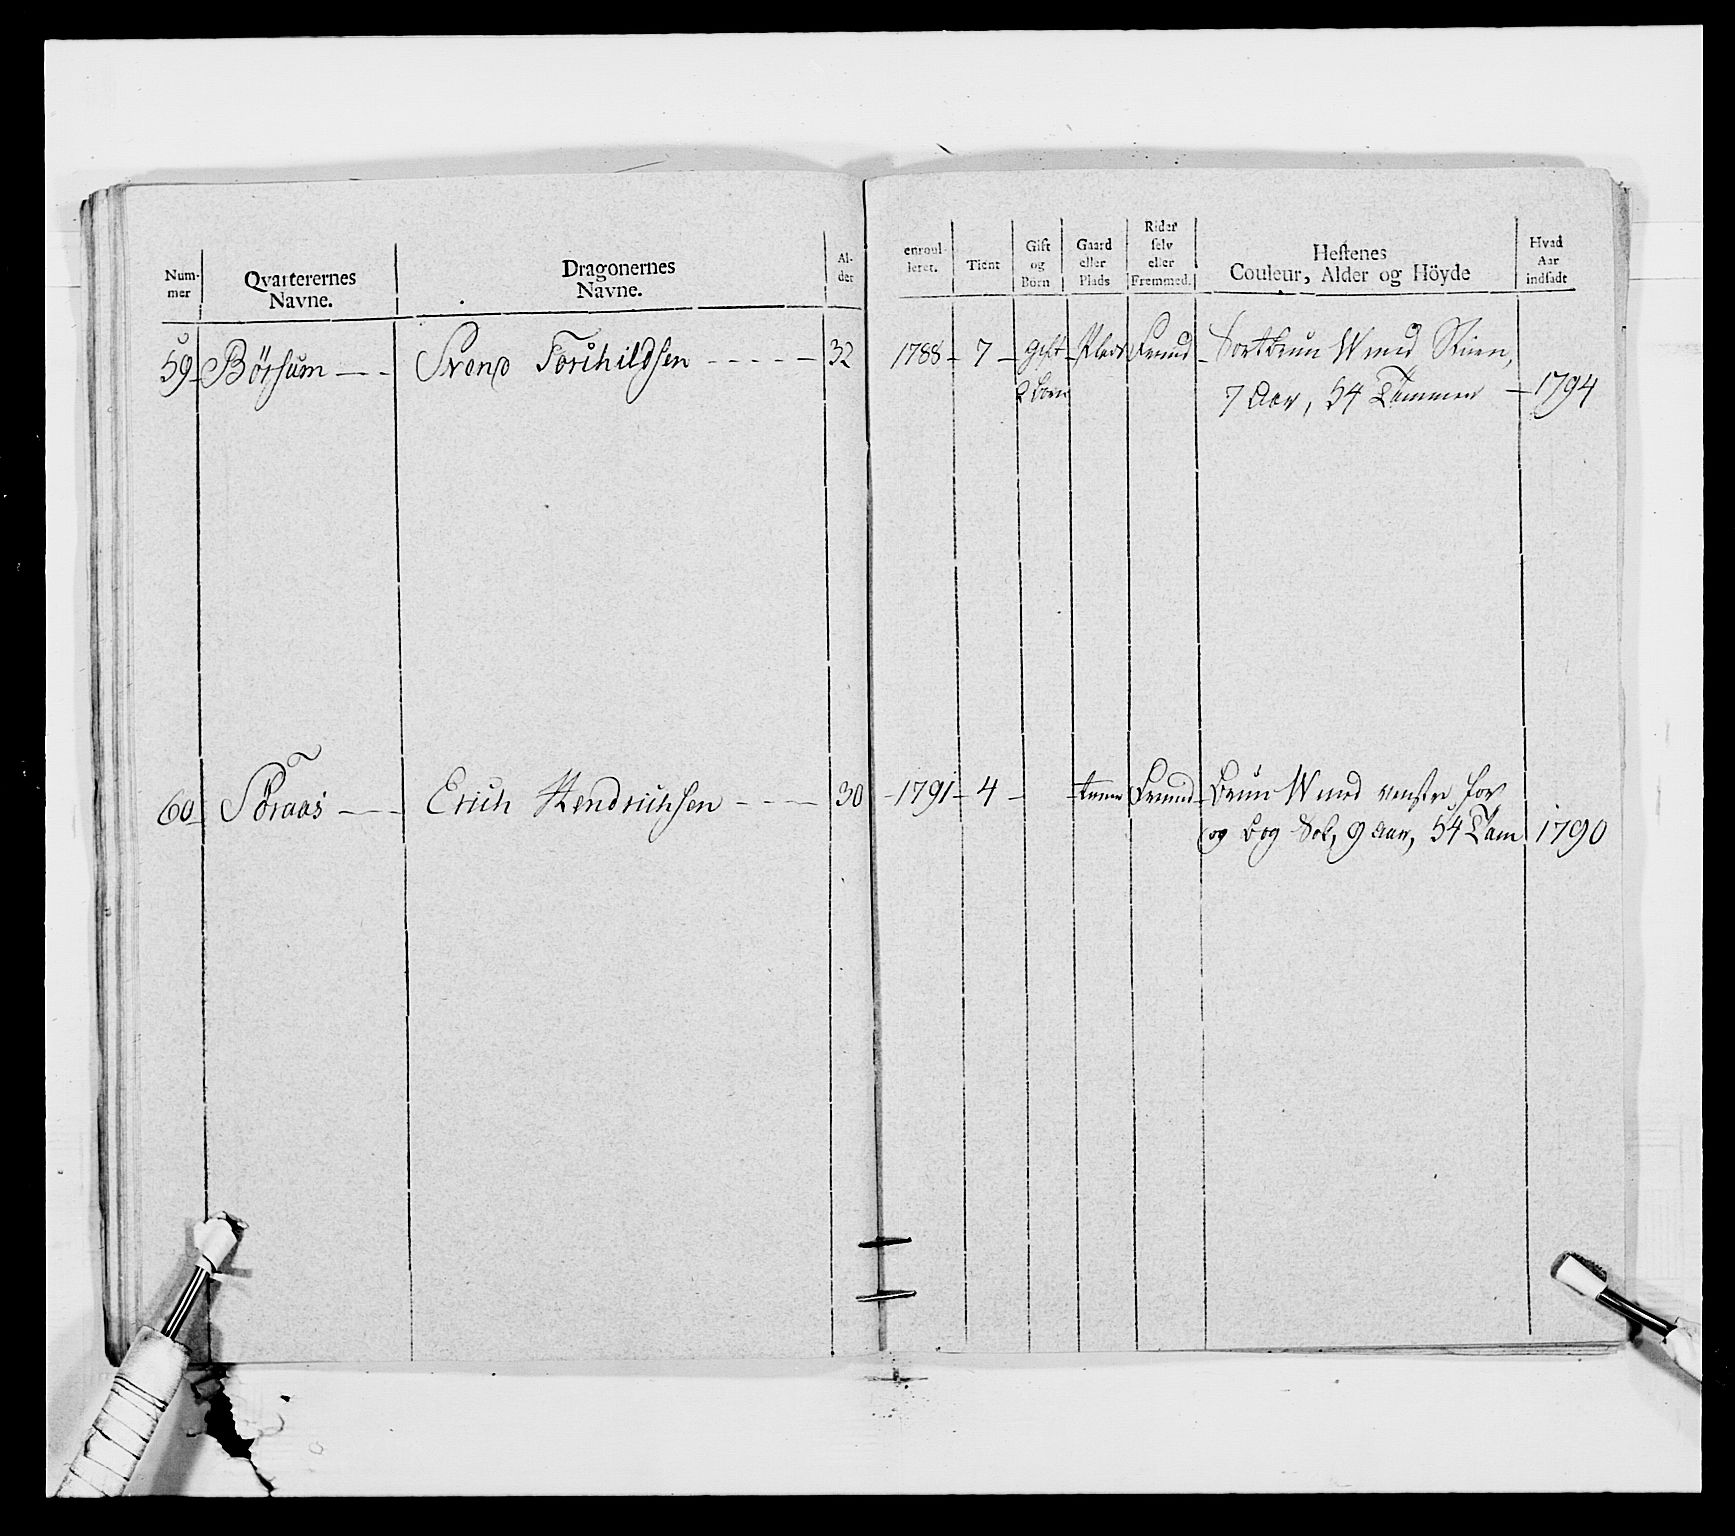 Num-
mer
Qvarterernes
Navne.
Dragonernes
Navne.
Al-
der
enroul-
leret.
Tient
Gift
og
Börn
Gaard
eller
Plads
Rider
selv
eller
Fremmed.
Hestenes
Couleur, Alder og Höyde
Hvad
Aar
indsadt
59 Börsum Svend Torchildsen 32 1788 7 Gift Plads Fremd Sortbrun W med Stiern,
2 born 7 Aar, 54 Tommer 1794
60 Söraas Erich Hendrichsen 30 1791 4 Fremd Brun W med venstre for
og bog Sok, 9 Aar, 54 Tom 1790